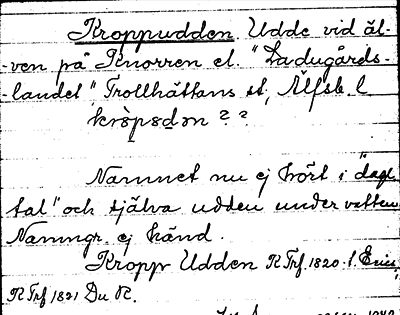 Kroppudden. Udde vid äl-
-ven på Knorren el. "Ladugårds-
-landet" Trollhättans st, Älfsb. l
kròpsdən ? ?
Namnet nu ej hört i "dagl.
tal" och själva udden under vatten
Namngr. ej känd.
Kropp Udden R Trf. 1820.
R Trf 1821 Du R.